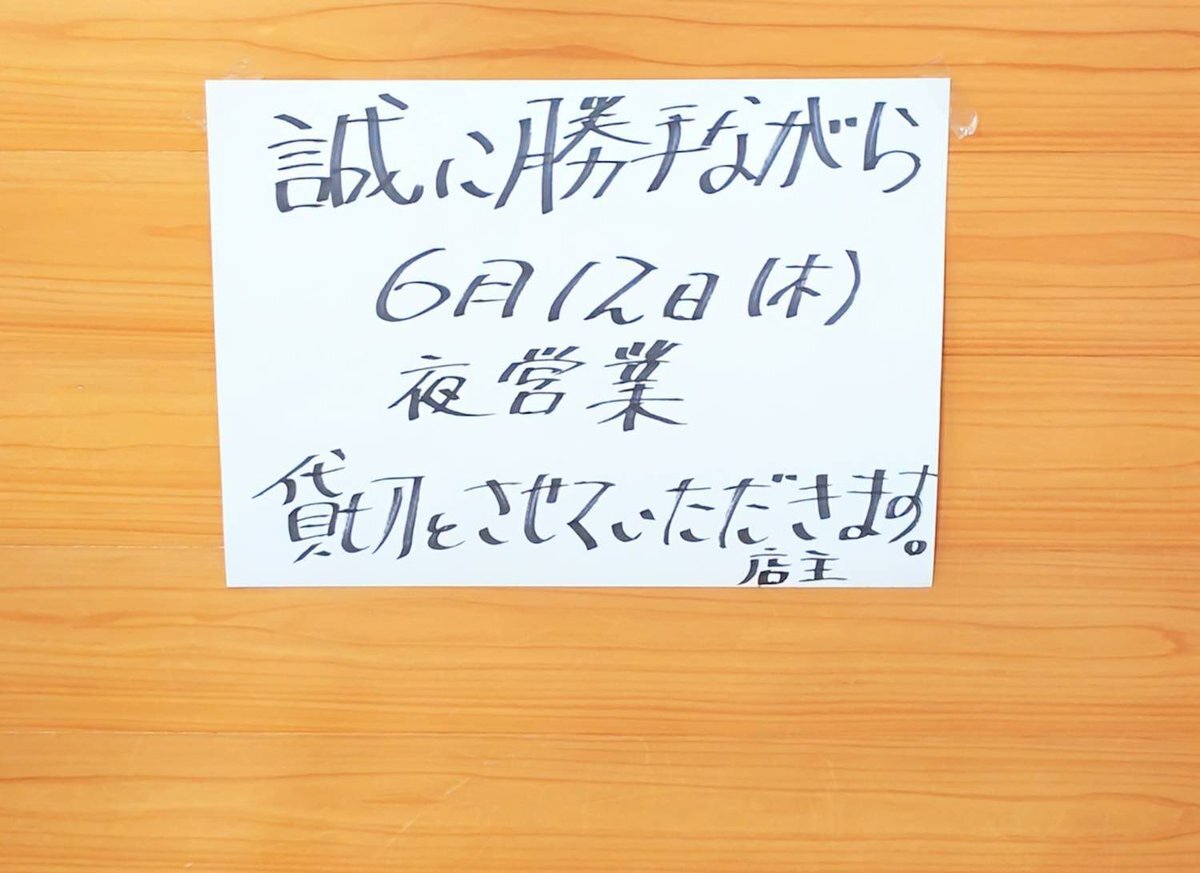 誠に勝手ながら
6月12日(木)
夜営業
貸切とさせていただきます。
店主